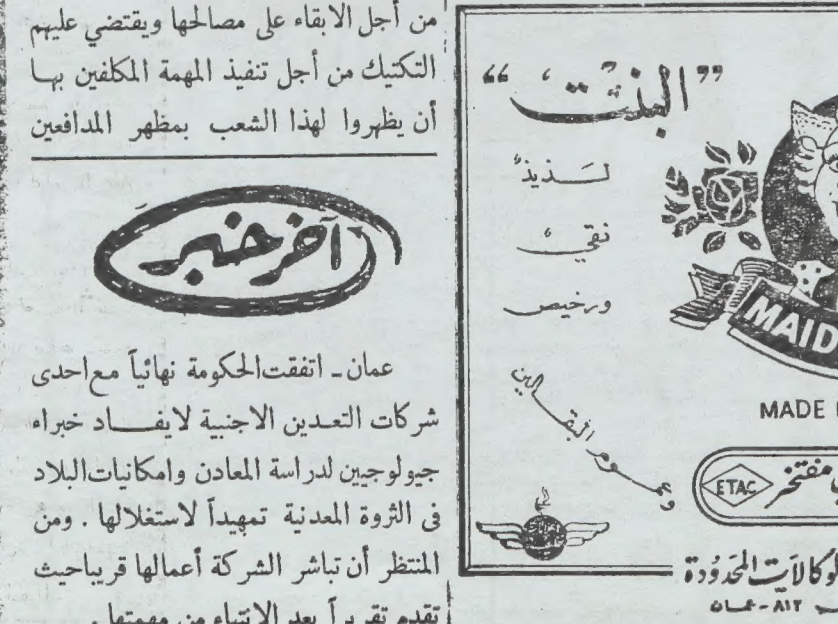 من أجل الابقاء على مصالحها ويقتضي عليهم
التكتيك من أجل تنفيذ المهمة المكلفين بها
أن يظهروا لهذا الشعب بمظهر المدافعين
آخر خبر
عمان ـ اتفقت الحكومة نهائياً مع احدى
شركات التعدين الاجنبية لايفاد خبراء
جيولوجيين لدراسة المعادن وامكانيات البلاد
فى الثروة المعدنية تمهيداً لاستغلالها . ومن
المنتظر أن تباشر الشركة أعمالها قريبا حيث
تقدم تقريراً بعد الانتهاء من مهمتها .
"البنت"
لذيذ
نقي
ورخيص
وعموم البقالين
MAID
MADE
ETAC
مفتخر
الوكالات المحدودة
٨١٢ - عمان